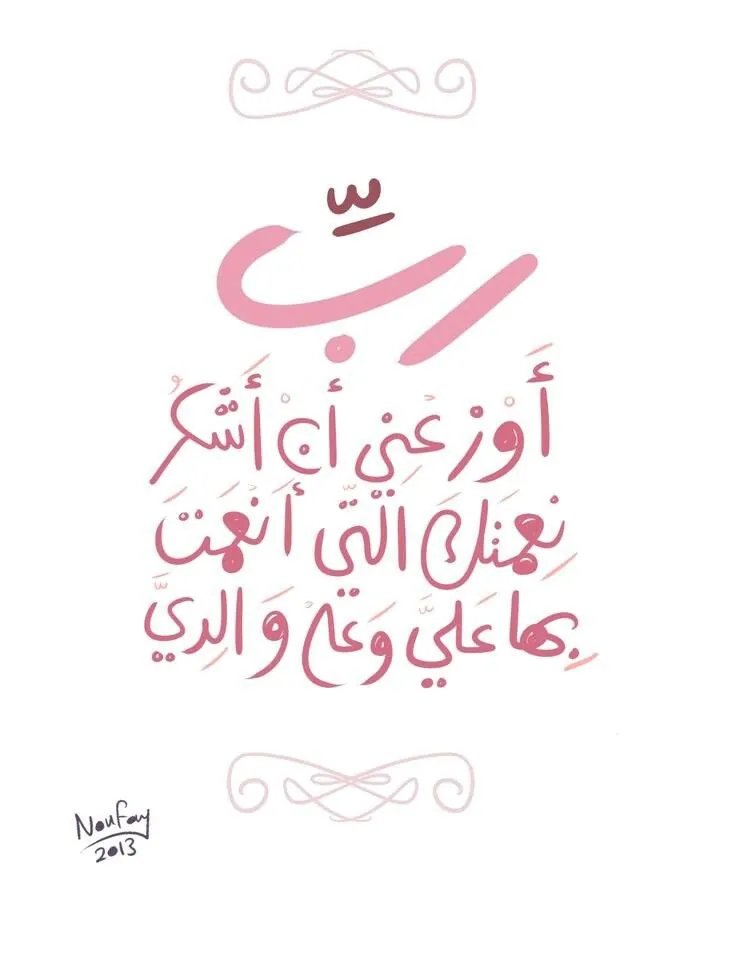 ربّ
أَوْزِعْنِي أَنْ أَشْكُرَ
نِعْمَتَكَ الَّتِي أَنْعَمْتَ
بِهَا عَلَيَّ وَعَلَى وَالِدَيَّ
Noufay
2013